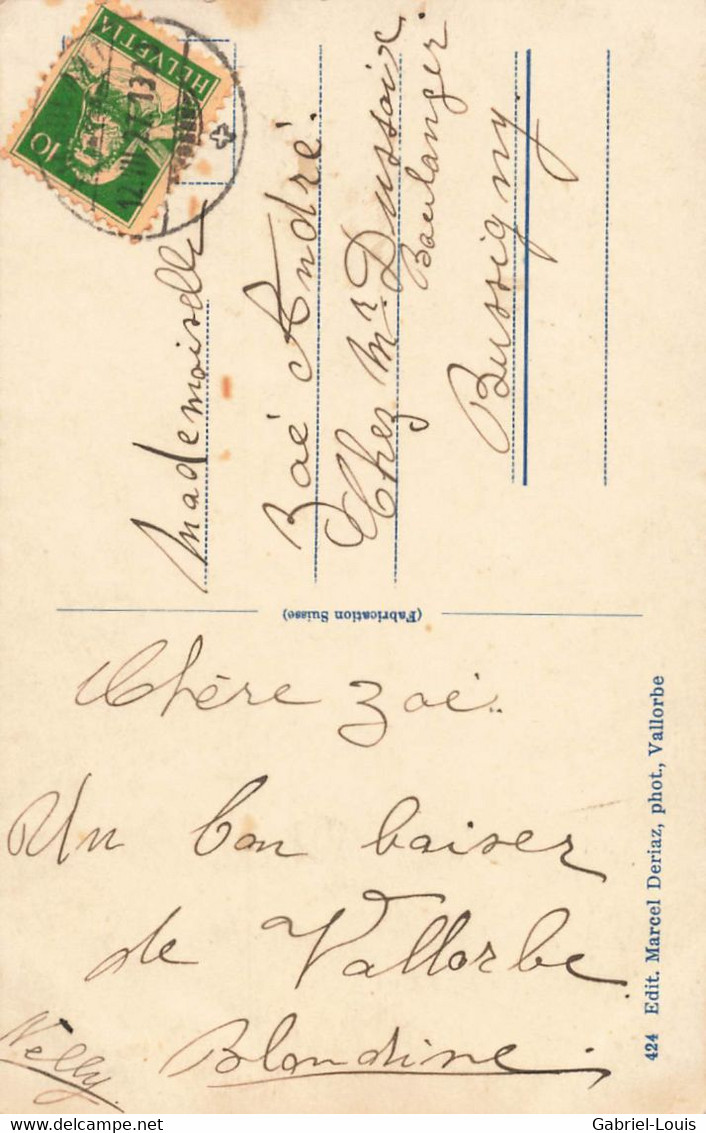 HELVETIA
10
Mademoiselle
Zoé André.
Chez Mr. Dussoix
Boulanger
Bussigny.
(Fabrication Suisse)
Chère Zoé..
Un bon baiser
de Vallorbe.
Nelly. Blondine.
424 Edit. Marcel Deriaz, phot., Vallorbe
Gabriel-Louis